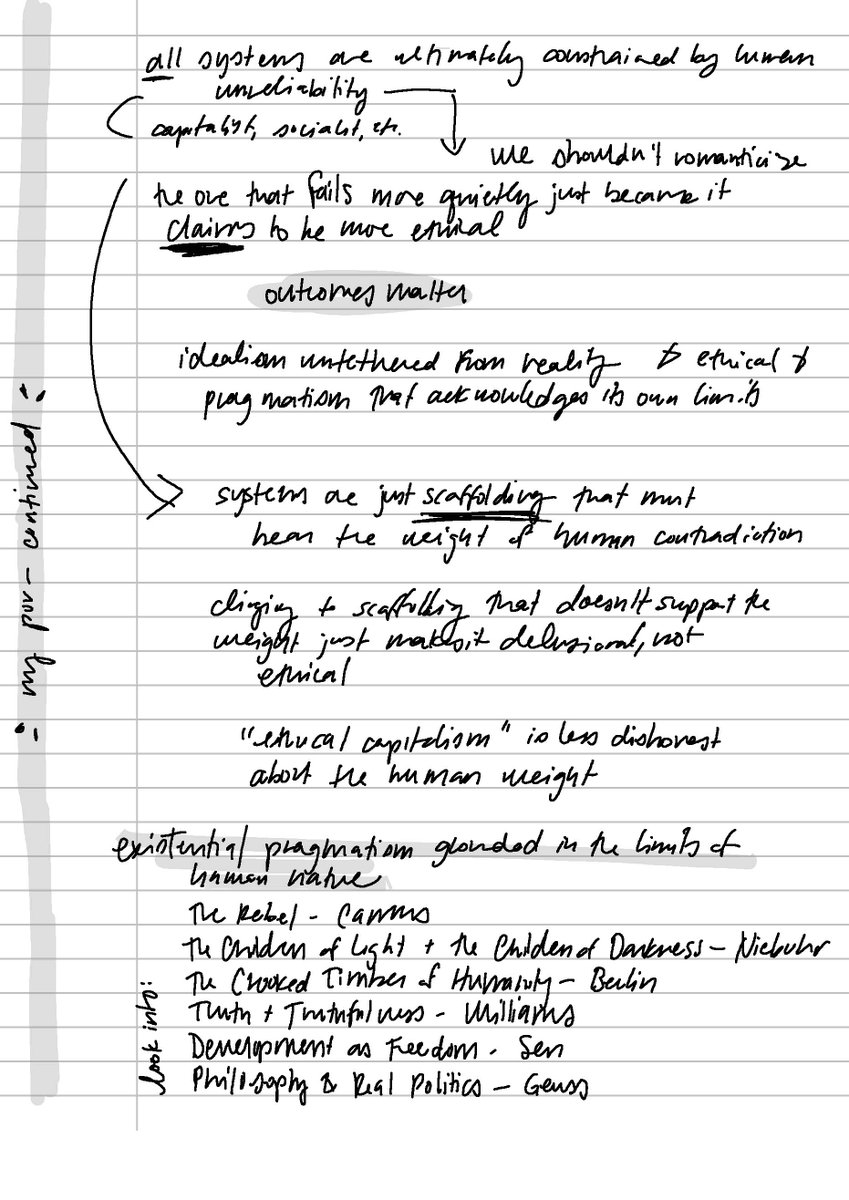 all systems are ultimately constrained by human
unreliability
capitalist, socialist, etc.
we shouldn't romanticize
the one that fails more quietly just because it
claims to be more ethical
outcomes matter
idealism untethered from reality ≯ ethical >
pragmatism that acknowledges its own limits
- my pov - continued :
systems are just scaffolding that must
bear the weight of human contradiction
clinging to scaffolding that doesn't support the
weight just makes it delusional, not
ethical
"ethical capitalism" is less dishonest
about the human weight
existential pragmatism grounded in the limits of
human nature
look into:
The Rebel - Camus
The Children of Light + the Children of Darkness - Niebuhr
The Crooked Timber of Humanity - Berlin
Truth + Truthfulness - Williams
Development as Freedom - Sen
Philosophy & Real Politics - Geuss